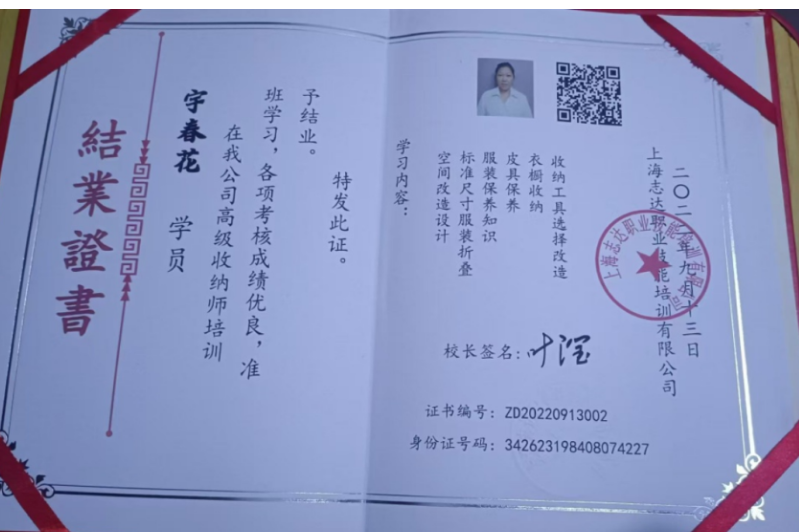 結業證書
宇春花 学员
在我公司高级收纳师培训
班学习，各项考核成绩优良，准
予结业。
特发此证。
学习内容：
空间改造设计
标准尺寸服装折叠
服装保养知识
皮具保养
衣橱收纳
收纳工具选择改造
上海志达职业技能培训有限公司
二〇二二年九月十三日
上海志达职业技能培训有限公司
校长签名：叶滢
证书编号：ZD20220913002
身份证号码：342623198408074227